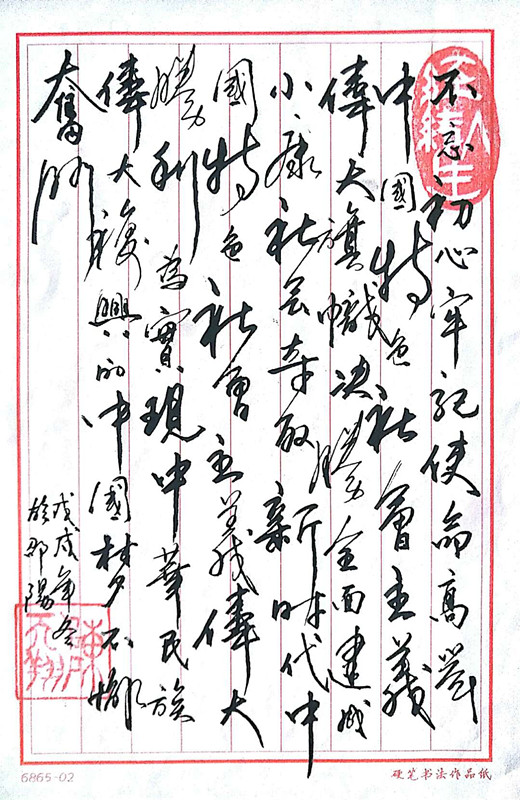 不忘初心牢記使命高举
中國特色社會主義
偉大旗幟决勝全面建成
小康社会奪取新时代中
國特色社會主義偉大
勝利為實現中華民族
偉大復興的中國梦不懈
奮鬥
戊戌年冬
於邵陽
6865-02
硬笔书法作品纸